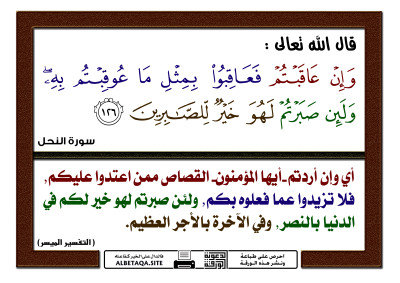 قال الله تعالى :
وَإِنْ عَاقَبْتُمْ فَعَاقِبُوا۟ بِمِثْلِ مَا عُوقِبْتُم بِهِۦ ۖ
وَلَئِن صَبَرْتُمْ لَهُوَ خَيْرٌ لِّلصَّٰبِرِينَ ١٢٦
سورة النحل
أي وإن أردتم-أيها المؤمنون- القصاص ممن اعتدوا عليكم,
فلا تزيدوا عما فعلوه بكم, ولئن صبرتم لهو خير لكم في
الدنيا بالنصر, وفي الآخرة بالأجر العظيم.
(التفسير الميسر)
ALBETAQA.SITE
احرص على طباعة
ونشر هذه الورقة